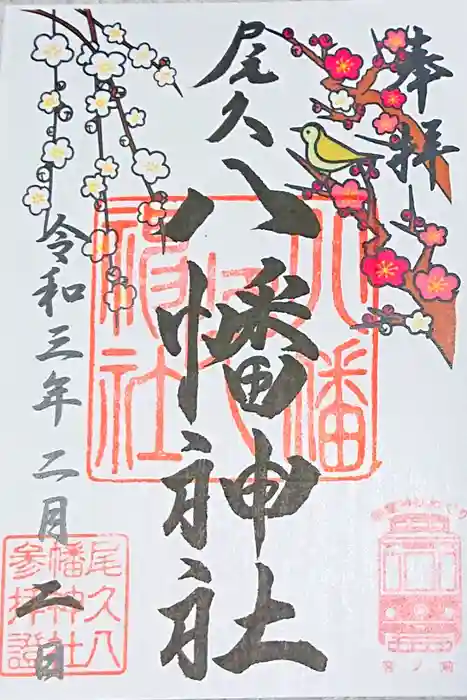 奉拝
尾久八幡神社
令和三年二月二日
八幡
神社
尾久八
幡神社
参拝證
宮ノ前